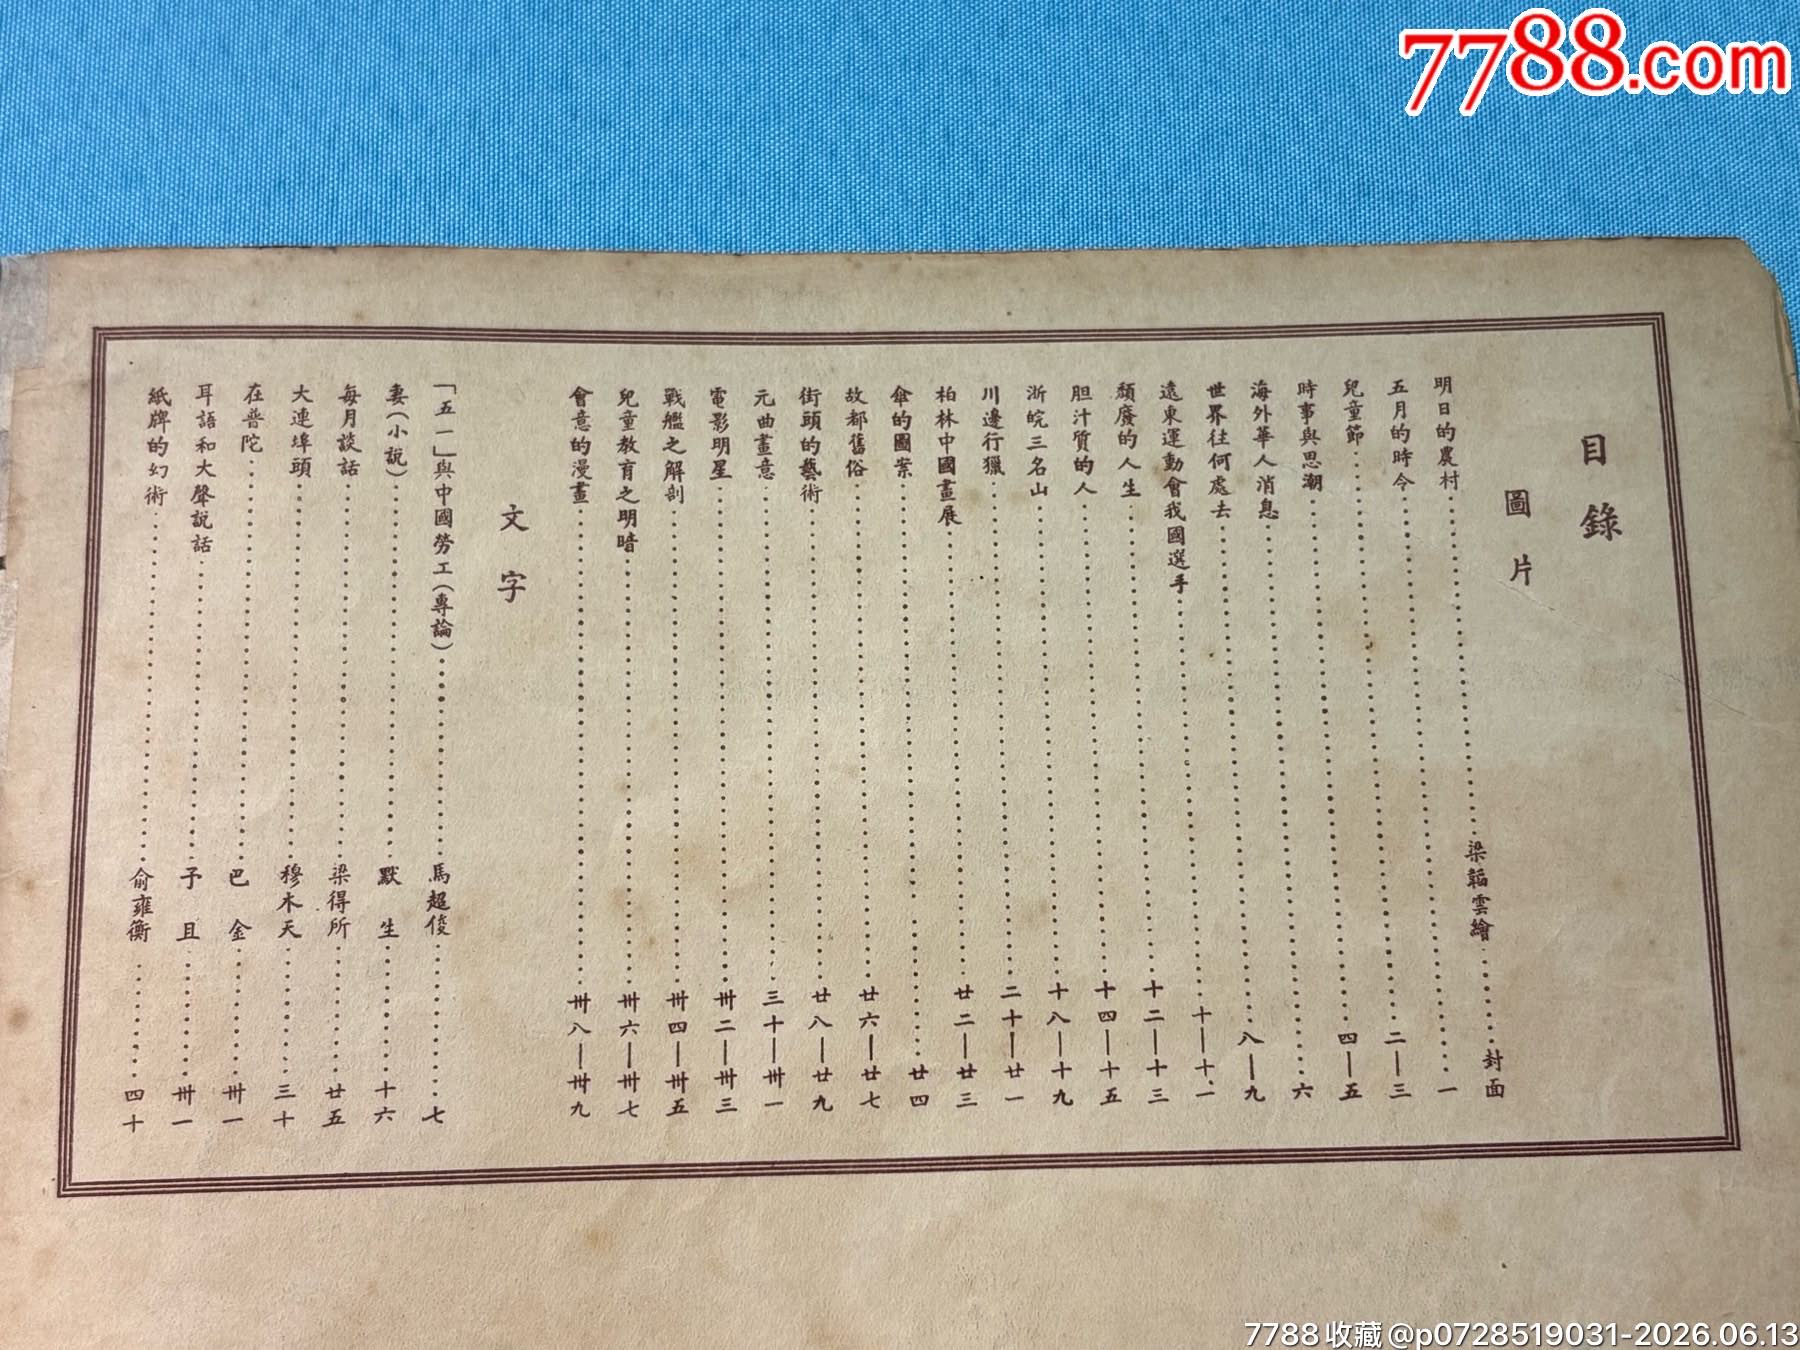 7788.com
目錄
圖片
明日的農村……梁韜雲繪……封面
五月的時令……一
兒童節……二—三
時事與思潮……四—五
海外華人消息……六
世界往何處去……八—九
遠東運動會我國選手……十—十一
頹廢的人生……十二—十三
胆汁質的人……十四—十五
浙皖三名山……十八—十九
川邊行獵……二十—廿一
柏林中國畫展……廿二—廿三
傘的圖案……廿四
故都舊俗……廿六—廿七
街頭的藝術……廿八—廿九
元曲畫意……三十—卅一
電影明星……卅二—卅三
戰艦之解剖……卅四—卅五
兒童教育之明暗……卅六—卅七
會意的漫畫……卅八—卅九
文字
「五一」與中國勞工(專論)……馬超俊……七
妻(小說)……默生……十六
每月談話……梁得所……廿五
大連埠頭……穆木天……三十
在普陀……巴金……卅一
耳語和大聲說話……予且……卅一
紙牌的幻術……俞雍衡……四十
7788收藏@p0728519031-2026.06.13